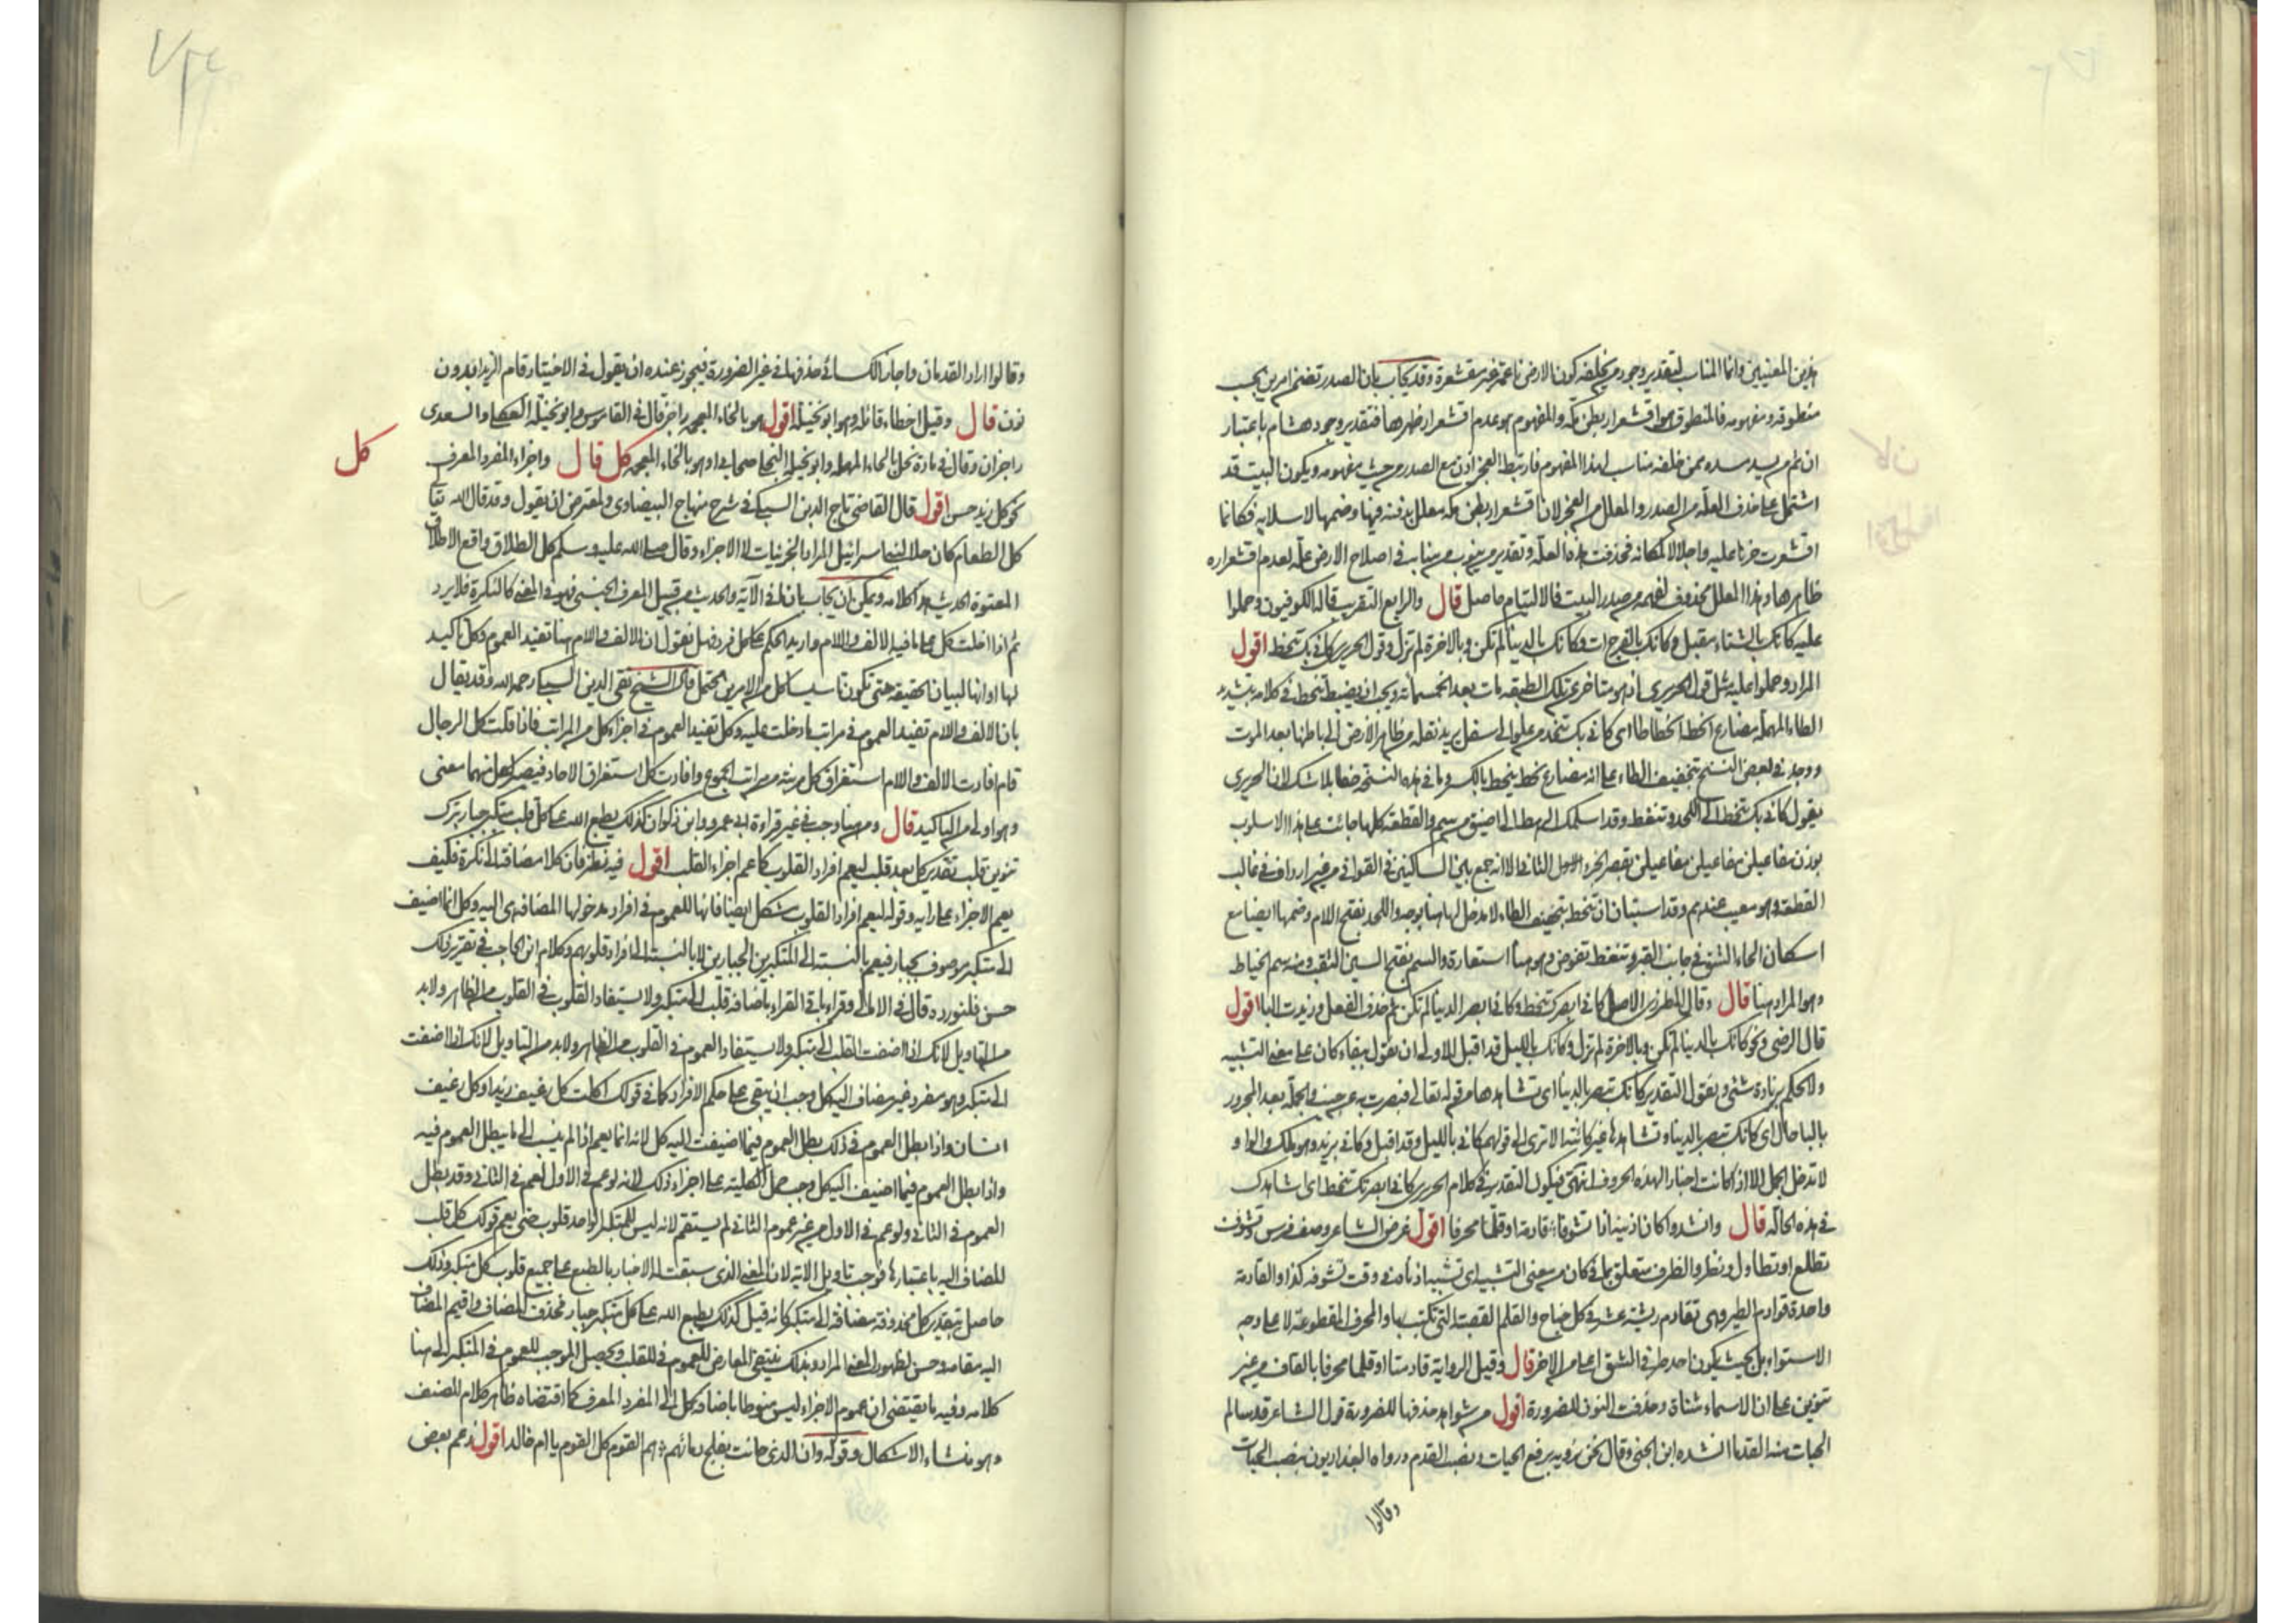 هذين المعنيين وانما المناسب لتقدير وجود من يخلفه كون الارض ناعمة غير مقشعرة وقد يجاب بان الصدر تضمن امرين بحسب
منطوقه ومفهومه فالمنطوق هو اقشعرار بطن مكة والمفهوم هو عدم اقشعرار ظهرها فتقدير وجود هشام باعتبار
ان ثم من يسد مسده ممن خلفه مناسب لهذا المفهوم فارتبط العجز اذن مع الصدر من حيث مفهومه ويكون البيت قد
اشتمل على حذف العلة من الصدر والمعلل من العجز لان اقشعرار بطن مكة معلل بدفنه فيها وضمها لاسلابه فكانما
اقشعرت حزنا عليه واجلالا لمكانه فحذفت هذه العلة وتقدير من ينوب منابه في اصلاح الارض علة لعدم اقشعراره
ظاهرها وهذا المعلل محذوف لفهمه من صدر البيت فالالتيام حاصل قال والرابع التقريب قاله الكوفيون وحملوا
عليه كانك بالشتاء مقبل وكانك بالفرج ات وكانك بالدنيا لم تكن وبالاخرة لم تزل وقول الحريري كاني بك تنحط اقول
المراد وحملوا عليه مثل قول الحريري اذ هو متاخر عن تلك الطبقة مات بعد الخمسمائة ويجب ان يضبط تنحط في كلامه بتشديد
الطاء المهملة مضارع انحط انحطاطا اي كاني بك تنحدر من علو الى سفل يريد نقله من ظاهر الارض الى باطنها بعد الموت
ووجد في بعض النسخ بتخفيف الطاء على انه مضارع نحط ينحط بالكسر وما في هذه النسخة خطا بلا شك لان الحريري
يقول كاني بك تنحط الى اللحد وتنغط وقد اسلمك الرهط الى اضيق من سم والقطعة كلها جائت على هذا الاسلوب
بوزن مفاعيلن مفاعيلن مفاعيلن بقصر الجزء الاول الثاني والا انه جمع بين الساكنين في القوافي من غير ارداف في غالب
القطعة وهو معيب عندهم وقد استبان ان تنحط بتخفيف الطاء لا مدخل لها هنا بوجه واللحد بفتح اللام وضمها ايضا مع
اسكان الحاء الشق في جانب القبر وتنغط تغوص وهو هنا استعارة والسم بفتح السين الثقب ومنه سم الخياط
وهو المراد هنا قال وقال المطرزي الاصل كاني ابصرك تنحط وكاني ابصر الدنيا لم تكن ثم حذف الفعل وزيدت البا اقول
قال الرضي ونحو كانك بالدنيا لم تكن وبالاخرة لم تزل وكانك بالليل قد اقبل الاولى ان نقول ببقاء كان على معنى التشبيه
ولا نحكم بزيادة شئ ونقول التقدير كانك تبصر بالدنيا اي تشاهدها من قوله تعالى فبصرت به عن جنب والجملة بعد المجرور
بالبا حال اي كانك تبصر بالدنيا وتشاهدها غير كائنة الا ترى الى قولهم كاني بالليل وقد اقبل وكاني بزيد وهو ملك والواو
لا تدخل الجمل الا اذا كانت اخبار الهذه الحروف انتهى فيكون التقدير في كلام الحريري كاني ابصر بك تنحط اي اشاهدك
في هذه الحالة قال وانشدوا كان اذنيه اذا تشوفا قادمة او قلما محرفا اقول غرض الشاعر وصف فرس وتشوف
تطلع او تطاول ونظر والظرف متعلق بما في كان من معنى التشبيه اي تشبيه اذناه في وقت تشوفه كذا والقادمة
واحدة قوادم الطير وهي مقاديم ريشه عشر في كل جناح والقلم القصبة التي تكتب بها والمحرف المقطوع لا على وجه
الاستواء بل بحيث يكون احد طرفي الشق اعلى من الاخر قال وقيل الرواية قادمتا او قلما محرفا بالقاف من غير
تنوين على ان الاسماء مثناة وحذفت النون للضرورة اقول من شواهد حذفها للضرورة قول الشاعر قد سالم
الحيات منه القدما انشده ابن الجني وقال نحن نرويه برفع الحيات ونصب القدم ورواه البغداديون بنصب الحيات
وقالوا
وقالوا اراد القدمان واجاز الكسائي حذفها في غير الضرورة فيجوز عنده ان يقول في الاختيار قام الزيدا بدون
نون قال وقيل اخطاء قائله وهو ابو نخيلة اقول هو بالخاء المعجمة راجز قال في القاموس وابو نخيلة العكلي والسعدي
راجزان وقال في مادة نحل بالحاء المهملة وابو نحيلة البجلي صحابي او هو بالخاء المعجمة كل قال واجزاء المفرد المعرف
كل
نحو كل زيد حسن اقول قال القاضي تاج الدين السبكي في شرح منهاج البيضاوي ولمعترض ان يقول وقد قال الله تعالى
كل الطعام كان حلا لبني اسرائيل المراد الجزئيات لا الاجزاء وقال صلى الله عليه وسلم كل الطلاق واقع الا طلاق
المعتوة الحديث هذا كلامه ويمكن ان يجاب بان ال في الآية والحديث من قبيل المعرف الجنسي فهو في المعنى كالنكرة فلا يرد
ثم اذا دخلت كل على ما فيه الالف واللام واريد الحكم على كل فرد فهل نقول ان الالف واللام هنا تفيد العموم وكل تاكيد
لها او انها لبيان الحقيقة حتى تكون تاسيسا كل من الامرين محتمل قال الشيخ تقي الدين السبكي رحمه الله وقد يقال
بان الالف واللام تفيد العموم في مراتب ما دخلت عليه وكل تفيد العموم في اجزاء كل من المراتب فاذا قلت كل الرجال
قام افادت الالف واللام استغراق كل مرتبة من مراتب الجموع وافادت كل استغراق الاحاد فيصير لكل منهما معنى
وهو اولى من التاكيد قال ومن هنا وجب في غير قراءة ابي عمرو وابن ذكوان كذلك يطبع الله على كل قلب متكبر جبار بترك
تنوين قلب تقدير كل بعد قلب ليعم افراد القلوب كما عم اجزاء القلب اقول فيه نظر فان كلا مضافة الى نكرة فكيف
يعم الاجزاء على رايه وقوله ليعم افراد القلوب مشكل ايضا فانها للعموم في افراد مدخولها المضافة هي اليه وكل انما اضيف
الى متكبر موصوف بجبار فيعم بالنسبة الى المتكبرين الجبارين لا بالنسبة الى افراد قلوبهم وكلام ابن الحاجب في تقرير ذلك
حسن فلنورده قال في الامالي وقراء باقي القراء باضافة قلب الى متكبر ولا يستفاد القلوب في القلوب على الظاهر ولابد
من التاويل لانك اذا اضفت القلب الى متكبر ولا يستفاد العموم في القلوب على الظاهر ولابد من التاويل لانك اذا اضفت
الى متكبر وهو مفرد غير مضاف اليه كل وجب ان يبقى على حكم الافراد كما في قولك اكلت كل رغيف زيد او كل رغيف
انسان واذا بطل العموم في ذلك بطل العموم فيما اضيفت اليه كل لانه انما يعم اذا لم ينسب الى ما يبطل العموم فيه
واذا بطل العموم فيما اضيف اليه كل وجب حمل الكلية على اجزاء ذلك لانه لو عم في الاول لعم في الثاني وقد بطل
العموم في الثاني ولو عم في الاول من غير عموم الثاني لم يستقم لانه ليس للمتكبر الواحد قلوب حتى يعم قولك كل قلب
للمضاف اليه باعتبارها فوجب تاويل الاية لان المعنى الذي سيقت له الاخبار بالطبع على جميع قلوب كل متكبر وذلك
حاصل بتقدير كل محذوفة مضافة الى متكبر كانه قيل كذلك يطبع الله على كل متكبر جبار فحذف المضاف واقيم المضاف
اليه مقامه وحسن لظهور المعنى المراد وبذلك ينتفي المعارض للعموم في القلب ويحصل الموجب للعموم في المتكبر الى هنا
كلامه وفيه ما يقتضي ان عموم الاجزاء ليس منوطا باضافة كل الى المفرد المعرف كما اقتضاه ظاهر كلام المصنف
وهو منشاء الاشكال وقوله وان الذي حانت بفلج دمائهم هم القوم كل القوم يا ام خالد اقول زعم بعض